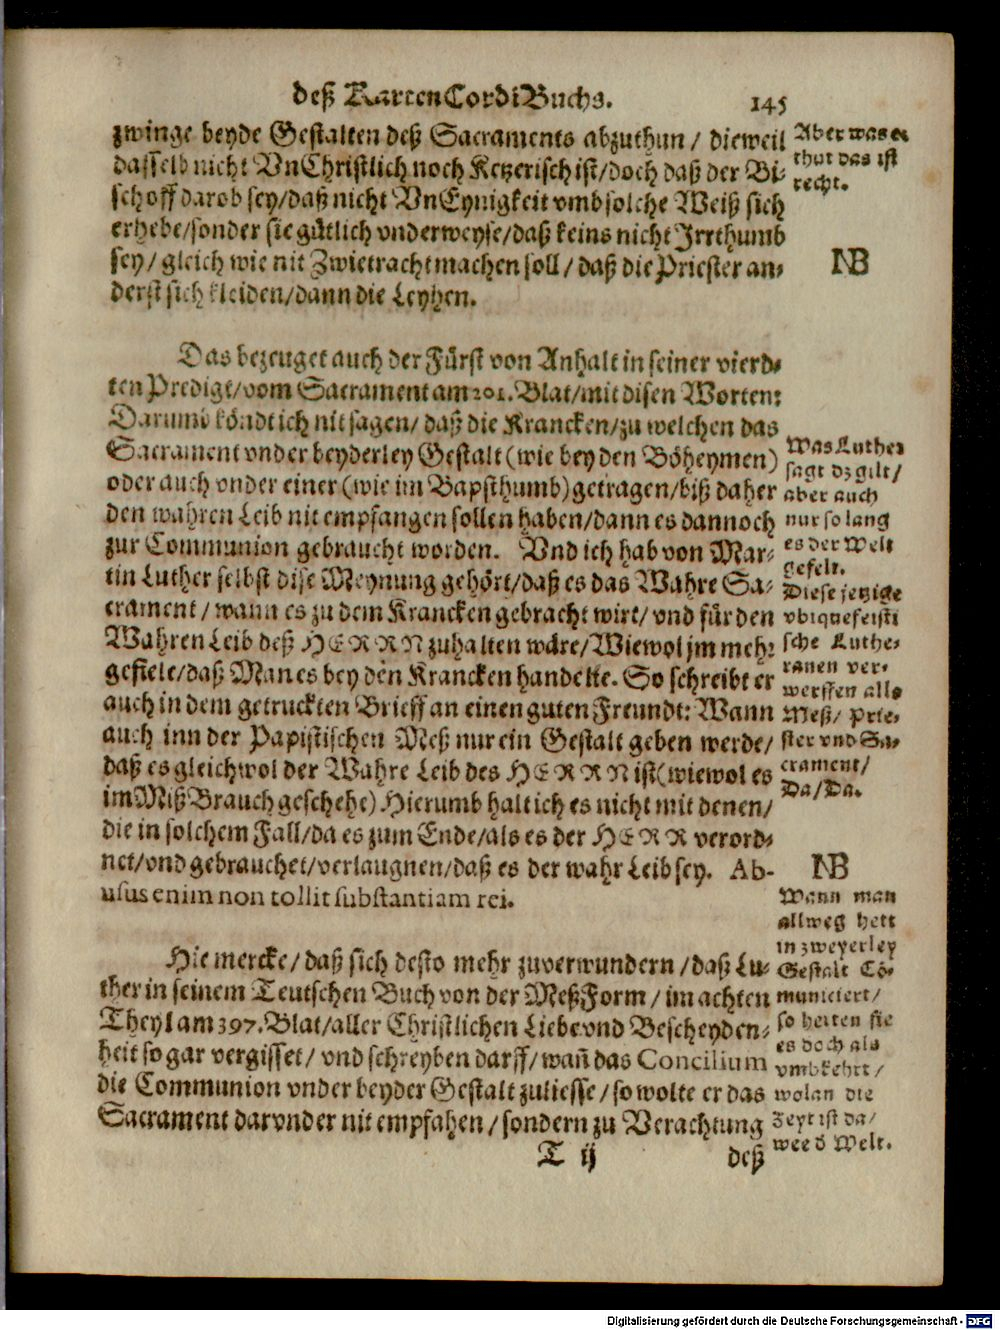 deß KartenCordiBuchs. 145
zwinge beyde Gestalten deß Sacraments abzuthun / dieweil
dasselb nicht VnChristlich noch Ketzerisch ist/doch daß der Bi-
schoff darob sey/daß nicht VnEynigkeit vmb solche Weiß sich
erhebe/sonder sie gütlich vnderweyse/daß keins nicht Irrthumb
sey/ gleich wie nit Zwietracht machen soll / daß die Priester an-
derst sich kleiden/dann die Leyhen.
Aber was er
thut das ist
recht.
NB
Das bezeuget auch der Fürst von Anhalt in seiner vierd-
ten Predigt/vom Sacrament am 201. Blat/mit disen Worten:
Darumb köndt ich nit sagen/ daß die Krancken/zu welchen das
Sacrament vnder beyderley Gestalt (wie bey den Böheymen)
oder auch vnder einer (wie im Bapsthumb) getragen/biß daher
den wahren Leib nit empfangen sollen haben/dann es dannoch
zur Communion gebraucht worden. Vnd ich hab von Mar-
tin Luther selbst dise Meynung gehört/daß es das Wahre Sa-
crament / wann es zu dem Krancken gebracht wirt/ vnd für den
Wahren Leib deß HERRN zuhalten wäre/Wiewol jm mehr
gefiele/daß Man es bey den Krancken handelte. So schreibt er
auch in dem getruckten Brieff an einen guten Freundt: Wann
auch inn der Papistischen Meß nur ein Gestalt geben werde/
daß es gleichwol der Wahre Leib des HERRN ist (wiewol es
im MißBrauch geschehe) Hierumb halt ich es nicht mit denen/
die in solchem Fall/da es zum Ende/als es der HERR verord-
net/vnd gebrauchet/verlaugnen/daß es der wahr Leib sey. Ab-
usus enim non tollit substantiam rei.
Was Luther
sagt dz gilt/
aber auch
nur so lang
es der Welt
gefelt.
Diese jetzige
vbiquetisti
sche Luthe-
ranen ver-
werffen alle
Meß/ Prie-
ster vnd Sa-
crament/
Da/Da.
NB
Hie mercke/ daß sich desto mehr zuverwundern / daß Lu-
ther in seinem Teutschen Buch von der MeßForm / im achten
Theyl am 397. Blat/aller Christlichen Liebe vnd Bescheyden-
heit so gar vergisset/ vnd schreyben darff/ wañ das Concilium
die Communion vnder beyder Gestalt zuliesse / so wolte er das
Sacrament darunder nit empfahen / sondern zu Verachtung
Wann man
allweg hett
in zweyerley
Gestalt Cõ-
municiert/
so hetten sie
es doch als
vmbkehrt/
wolan die
Zeyt ist da/
wee d Welt.
T ij deß
Digitalisierung gefördert durch die Deutsche Forschungsgemeinschaft - DFG